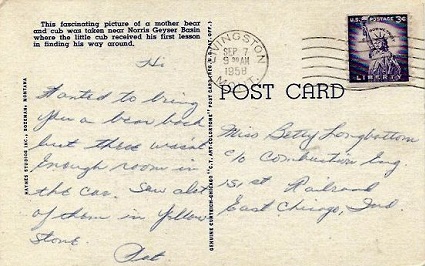 This fascinating picture of a mother bear
and cub was taken near Norris Geyser Basin
where the little cub received his first lesson
in finding his way around.
Hi
Wanted to bring
you a bear back
but there wasnt
enough room in
the car. Saw alot
of them in Yellow
stone.
Pat
HAYNES STUDIOS INC., BOZEMAN, MONTANA
GENUINE CURTEICH-CHICAGO "C.T. ART-COLORTONE" POST CARD
LIVINGSTON
SEP 7
9 AM
1958
MONT.
U.S. POSTAGE 3¢
LIBERTY
POST CARD
Miss Betty Longbottom
c/o Combustion Eng.
151st Railroad
East Chicago, Ind.